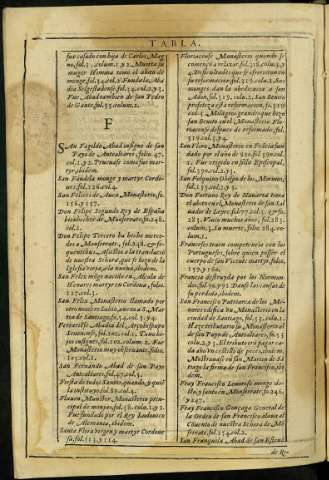 TABLA.
fue casado con hija de Carlos Mag
no, fol. 3. colum. 1. y 2. Muerta su
muger Himma tomò el abito de
monge, fol. 34. col. 2. Fundala Aba
dia Selgestadense, fol. 34. col. 2. y 3.
Fue Abad tambien de san Pedro
de Gante, fol. 35. colum. 2.
F
SAn Fagildo Abad insigne de san
Payo de Antealtares, folio. 47.
col. 1. y 2. Pruevase como fue mar-
tyr, ibidem.
San Fandila monge y martyr Cordo
ues, fol. 126. col. 4.
San Felices de Auca Monasterio, fo.
156. y 157.
Don Felipe Segundo Rey de España
bienhechor de Monserrate, fo. 248.
col. 2.
Don Felipe Tercero ha hecho merce-
des a Monserrate, fol. 248. 
quentela, y assistio a la translacion
de nuestra Señora, que se hizo de la
Iglesia vieja, a la nueua, ibidem.
San Feliz monge nacido en Alcala de
Henares martyr en Cordoua, folio.
127. col. 3.
San Feliz, Monasterio llamado por
otro nombre Ixalo, aora es S. Mar
tin de Santiago, fol. 54. col. 3. y 4.
Ferrariense Abadia del Arçobispado
Turonense, fol. 102. col. 1. Fundado-
res insignes, fol. 102. colum. 2. Fue
Monasterio muy obseruante, folio.
103. col. 1.
San Fernando Abad de san Payo
Antealtares, fol. 47. col. 4.
Fiesta de todos Santos, quando, y quié
la instituyo, fol. 39. col. 2.
Monasterio princi-
pal de monjas, fol. 36. col. 1. y 2.
Fue fundado por el Rey Ludouico
de Alemania, ibidem.
Santa Flora virgen y martyr Cordoue
sa, fol. 113. y 114.
Floriacense Monasterio quando se
començo a relaxar, fol. 318. colu. 3. y
4. Dificultades que se ofrecieron en
su reformacion, fol. 318. col. 4. Los
monges dan la obediencia a san
Odon, fol. 319. colu. 2. San Benito
profetiza esta reformacion, fo. 319.
colu. 2. Milagros grandes que hizo
san Benito en el Monasterio Flo-
riacense despues de reformado, fol.
319. col. 3. y 4.
San Flora Monasterio en Galicia fun-
dado por el año de 930. fol. 330. col.
2. Fue erigido en silla Episcopal,
fol. 330. col. 2. y 3.
San Folquino Obispo de los Morinos,
fol. 135. col. 2. y 3.
Don Fortun Rey de Nauarra tomo
el abito en el Monasterio de san Sal
uador de Leyre, fol. 77. col. 3. 
281. Viuio muchos años, fol. 283.
colum. Su muerte, folio. 284. co-
lum. 1.
Franceses traian competencia con los
Portugueses, sobre quien posee el
cuerpo de san Vicente martyr, folio.
159. y 160.
Francia destruyda por los Norman-
dos, fol. 90. y 92. Danse las causas de
su perdida, ibidem.
San Francisco Patriarca de los Me-
nores edifica vn Monasterio en la
ciudad de Santiago, fol. 53. col. 1.
Haze tributario su Monasterio al
de san Payo de Antealtares, fo. 53.
colum. 2. y 3. El tributo era pagar ca-
da año vn cestillo de peces, ibidem.
Muestranse en san Martin de San-
tiago la firma de san Francisco, ibi-
dem.
Fray Francisco Leonardo monge do-
cto y santo en Monserrate, fo. 246.
y 247.
Fray Francisco Gonzaga General de
la Orden de san Francisco alaba el
Claustro de nuestra Señora de Mon
serrate, fol. 254. col. 2.
San Franquila Abad de san Esteuā
de Ri-